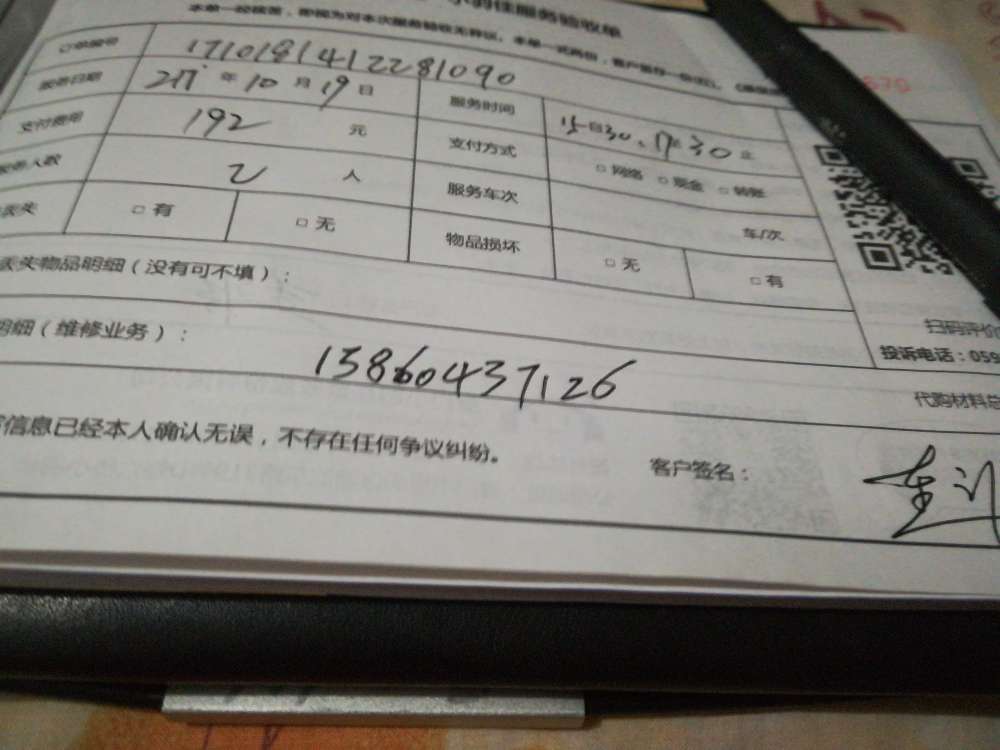 佳服务验收单
本单一经核签，即视为对本次服务验收无异议，本单一式两份，客户留存一份
订单编号 17101814122281090
服务日期 2017年10月19日 服务时间 15 30 17 30 止
支付费用 192 元 支付方式 □网络 □现金 □转账
服务人数 2 人 服务车次 车/次
丢失 □有 □无 物品损坏 □无 □有
丢失物品明细（没有可不填）：
扫码评价
明细（维修业务）：
投诉电话：059
15860437126
代购材料总
信息已经本人确认无误，不存在任何争议纠纷。
客户签名：